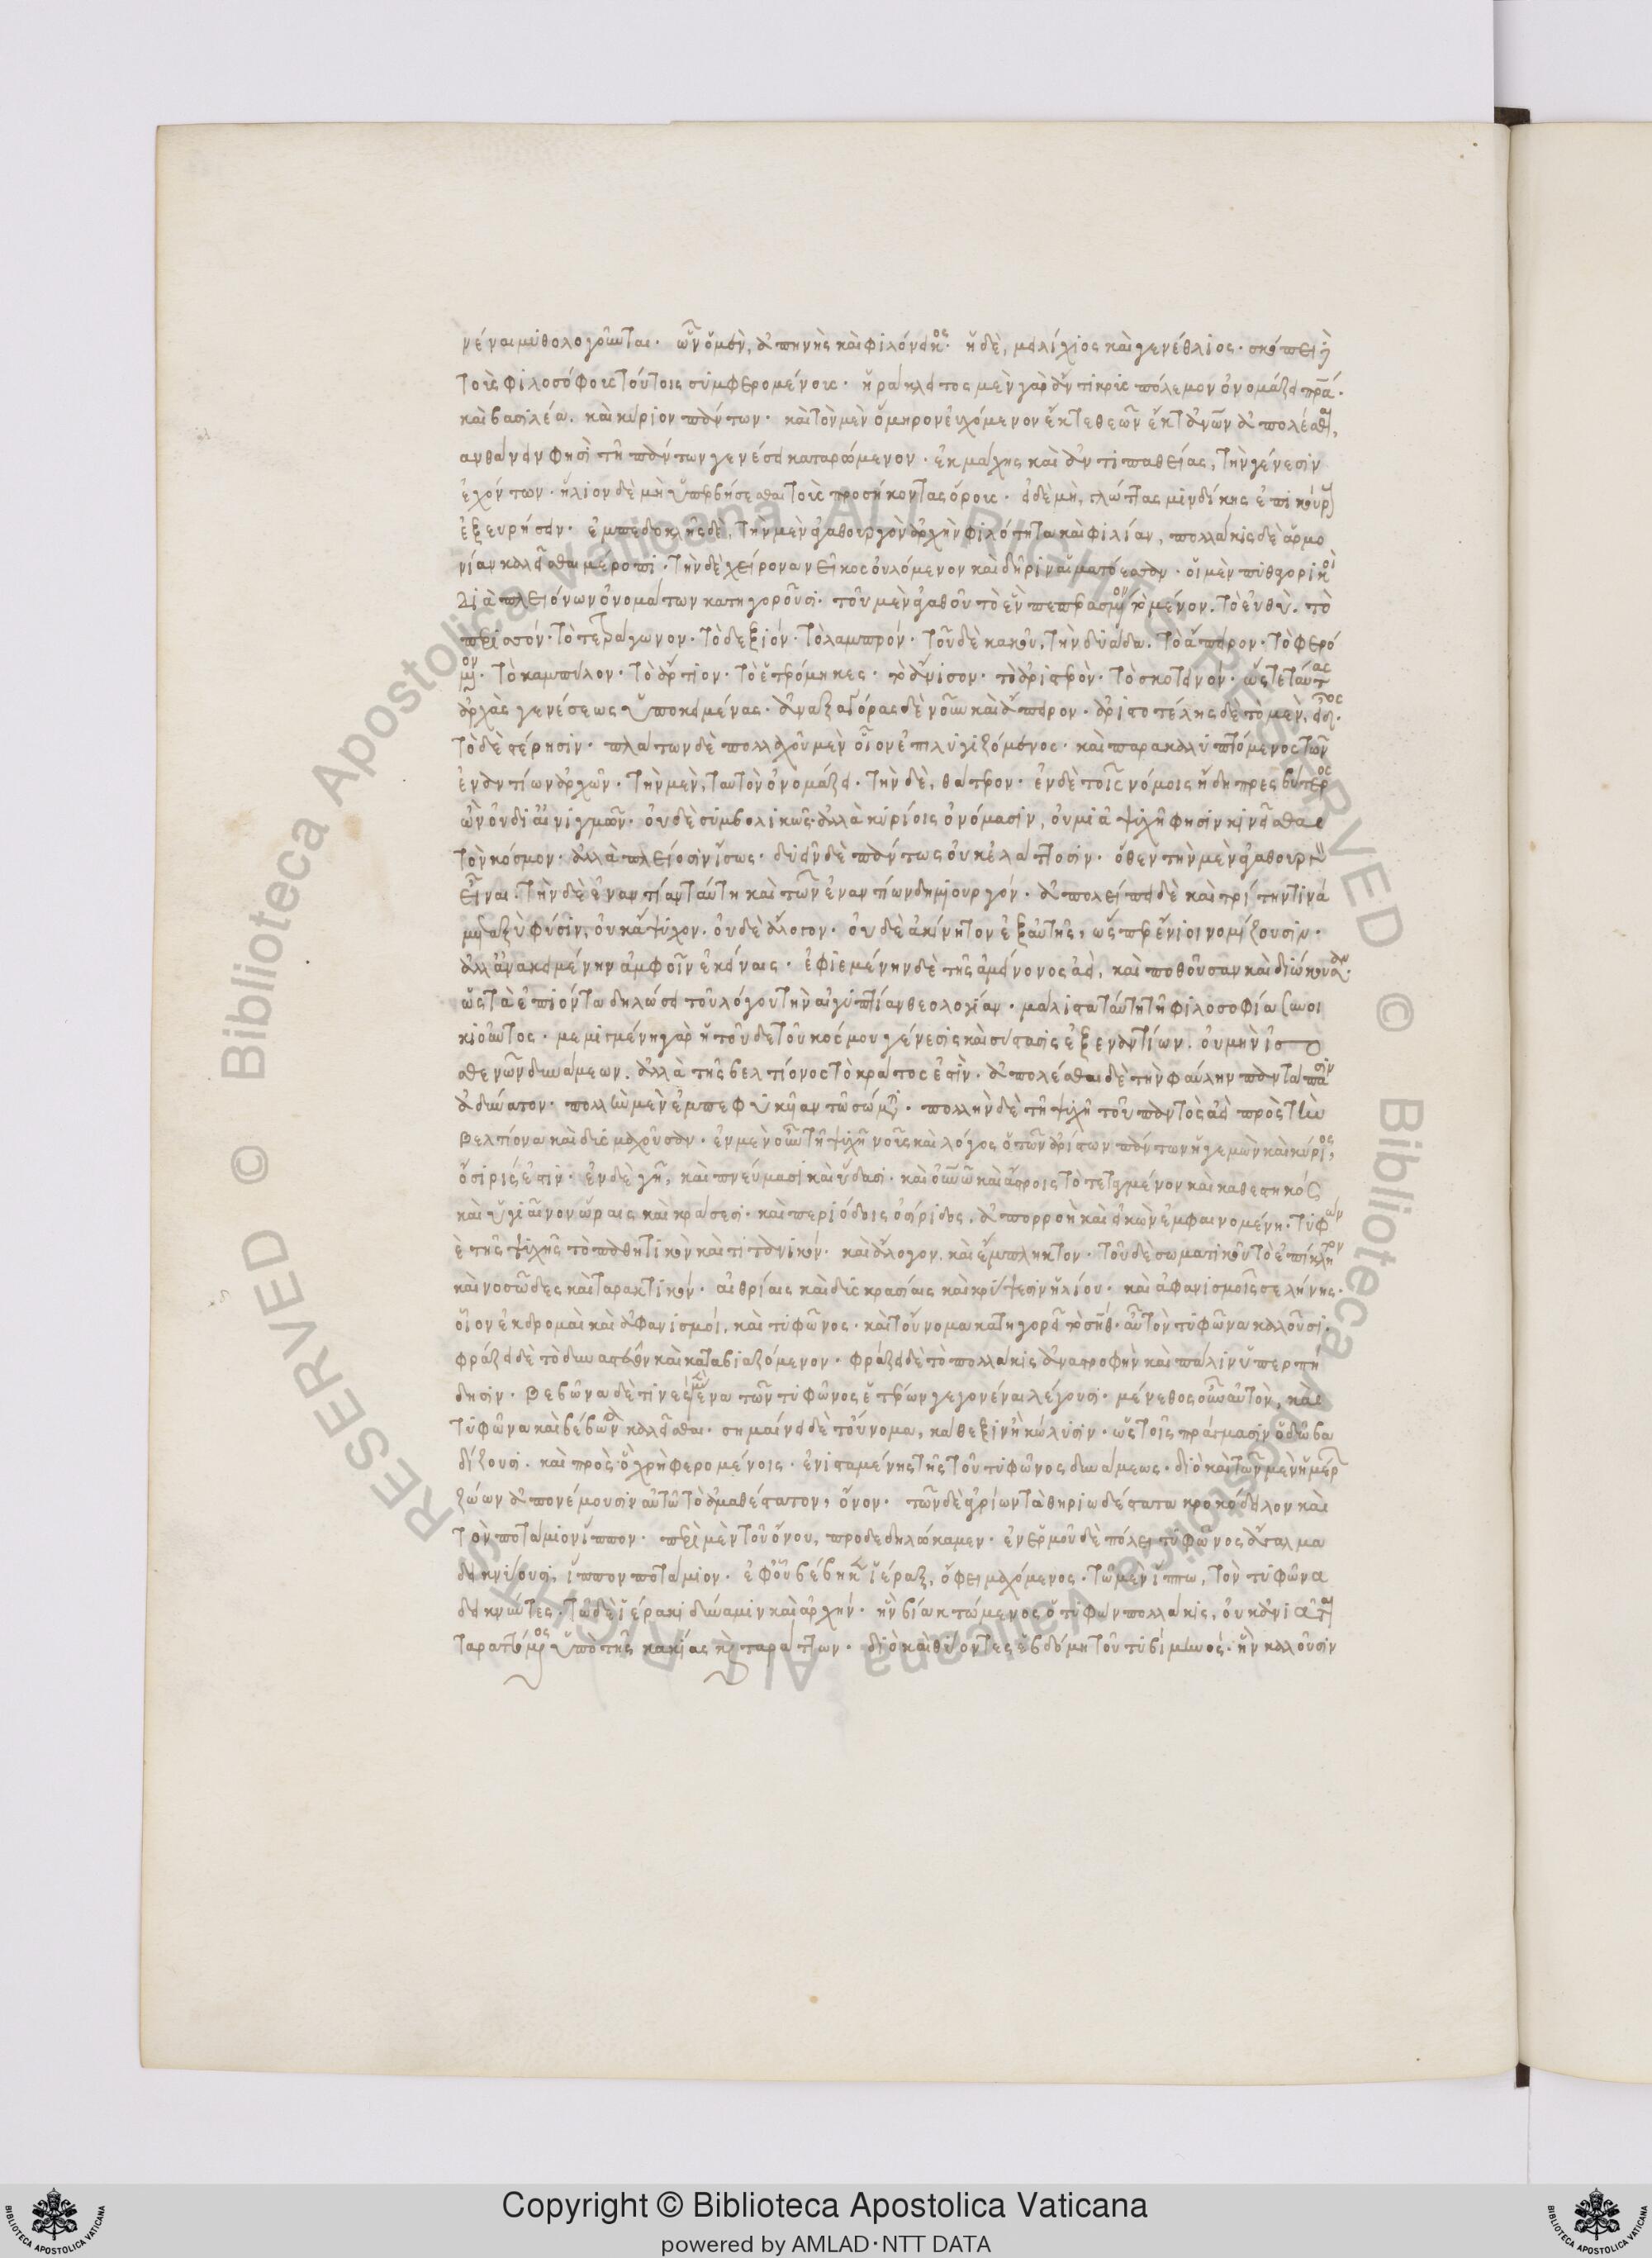 νέναι μυθολογοῦνται. ὧν ὁ μὲν, ἀπηνὴς καὶ φιλόνεικος. ἡ δὲ, μειλίχιος καὶ γενέθλιος. σκόπει δὲ
τοῖς φιλοσόφοις τούτοις συμφερομένοις. ἡράκλειτος μὲν γὰρ ἄντικρις πόλεμον ὀνομάζει πρα.
καὶ βασιλέα. καὶ κύριον πάντων. καὶ τὸν μὲν ὅμηρον εὐχόμενον ἔκ τε θεῶν ἔκ τ' ἀνῶν ἀπολέσθαι,
λανθάνειν φησὶ τῇ πάντων γενέσει καταρώμενον. ἐκ μάχης καὶ ἀντιπαθείας, τὴν γένεσιν
ἐχόντων. ἥλιον δὲ μὴ ὑπερβήσεσθαι τοὺς προσήκοντας ὅρους. εἰ δὲ μὴ, κλώττας μιν δίκης ἐπικούρ
ἐξευρήσειν. ἐμπεδοκλῆς δὲ, τὴν μὲν ἀγαθουργὸν ἀρχὴν φιλότητα καὶ φιλίαν, πολλάκις δὲ ἁρμο
νίαν καλεῖσθαι μέροπι. τὴν δὲ χείρονα νεῖκος οὐλόμενον καὶ δῆριν αἱματόεσσαν. οἱ μὲν πυθαγορικοὶ
διὰ πλειόνων ὀνομάτων κατηγοροῦσι. τοῦ μὲν ἀγαθοῦ τὸ ἓν πεπερασμένον τὸ μένον. τὸ εὐθὺ. τὸ
περισσόν. τὸ τετράγωνον. τὸ δεξιόν. τὸ λαμπρόν. τοῦ δὲ κακοῦ, τὴν δυάδα. τὸ ἄπειρον. τὸ φερό
μενον. τὸ καμπύλον. τὸ ἄρτιον. τὸ ἑτερόμηκες. τὸ ἄνισον. τὸ ἀριστερὸν. τὸ σκοτεινόν. ὥστε ταύτας
ἀρχὰς γενέσεως ὑποκειμένας. ἀναξαγόρας δὲ νοῦν καὶ ἄπειρον. ἀριστοτέλης δὲ τὸ μὲν, εἶδος.
τὸ δὲ στέρησιν. πλάτων δὲ πολλαχοῦ μὲν οἷον ἐπηλυγιζόμενος. καὶ παρακαλυπτόμενος τῶν
ἐναντίων ἀρχῶν. τὴν μὲν, ταυτὸν ὀνομάζει. τὴν δὲ, θάτερον. ἐν δὲ τοῖς νόμοις ἤδη πρεσβύτερος
ὢν οὐ δι' αἰνιγμῶν. οὐδὲ συμβολικῶς. ἀλλὰ κυρίοις ὀνόμασιν, οὐ μιᾷ ψυχῇ φησὶν κινεῖσθαι
τὸν κόσμον. ἀλλὰ πλείοσιν ἴσως. δυεῖν δὲ πάντως οὐκ ἐλάττοσιν. ὅθεν τὴν μὲν ἀγαθουργὸν
εἶναι. τὴν δὲ ἐναντίαν ταύτῃ καὶ τῶν ἐναντίων δημιουργόν. ἀπολείπει δὲ καὶ τρίτην τινὰ
μεταξὺ φύσιν, οὐκ ἄψυχον. οὐδὲ ἄλογον. οὐδὲ ἀκίνητον ἐξ αὑτῆς, ὥσπερ ἔνιοι νομίζουσιν.
ἀλλ' ἀνακειμένην ἀμφοῖν ἐκείναις. ἐφιεμένην δὲ τῆς ἀμείνονος ἀεὶ, καὶ ποθοῦσαν καὶ διώκουσαν.
ὡς τὰ ἐπιόντα δηλώσει τοῦ λόγου τὴν αἰγυπτίαν θεολογίαν. μάλιστα ταύτῃ τῇ φιλοσοφίᾳ συνοι
κιοῦντος. μεμιγμένη γὰρ ἡ τοῦδε τοῦ κόσμου γένεσις καὶ σύστασις ἐξ ἐναντίων. οὐ μὴν ἰσο
σθενῶν δυνάμεων. ἀλλὰ τῆς βελτίονος τὸ κράτος ἐστὶν. ἀπολέσθαι δὲ τὴν φαύλην παντάπασιν
ἀδύνατον. πολλὴν μὲν ἐμπεφυκυῖαν τῷ σώματι. πολλὴν δὲ τῇ ψυχῇ τοῦ παντὸς ἀεὶ πρὸς τὴν
βελτίονα καὶ δυσμαχοῦσαν. ἐν μὲν οὖν τῇ ψυχῇ νοῦς καὶ λόγος ὁ τῶν ἀρίστων πάντων ἡγεμὼν καὶ κύριος,
ὄσιρίς ἐστιν. ἐν δὲ γῇ, καὶ πνεύμασι καὶ ὕδασι. καὶ οὐνῷ καὶ ἄστροις τὸ τεταγμένον καὶ καθεστηκὸς
καὶ ὑγιαῖνον ὥραις καὶ κράσεσι. καὶ περιόδοις ὀσίριδος. ἀπορροὴ καὶ εἰκὼν ἐμφαινομένη. τύφων
ὲ τῆς ψυχῆς τὸ παθητικὸν καὶ τιτανικόν. καὶ ἄλογον. καὶ ἔμπληκτον. τοῦ δὲ σωματικοῦ τὸ ἐπίκλητον
καὶ νοσῶδες καὶ ταρακτικόν. αἰθρίαις καὶ δυσκρασίαις καὶ κρύψεσιν ἡλίου. καὶ ἀφανισμοῖς σελήνης.
οἷον ἐκδρομαὶ καὶ ἀφανισμοί, καὶ τυφῶνος. καὶ τοὔνομα κατηγορεῖ τὸ σήθ. αὐτὸν τυφῶνα καλοῦσι.
φράζει δὲ τὸ δυναστεῦον καὶ καταβιαζόμενον. φράζει δὲ τὸ πολλάκις ἀναστροφὴν καὶ πάλιν ὑπερπή
δησιν. βέβωνα δὲ τινὲς μὲν ἕνα τῶν τυφῶνος ἑτέρων γεγονέναι λέγουσι. μάνεθος οὖν αὐτὸν, καὶ
τυφῶνα καὶ βέβωνα καλεῖσθαι. σημαίνει δὲ τοὔνομα, κάθεξιν ἢ κώλυσιν. ὡς τοῖς πράγμασιν ὁδῷ βα
δίζουσι. καὶ πρὸς ὃ χρὴ φερομένοις. ἐνισταμένης τῆς τοῦ τυφῶνος δυνάμεως. διὸ καὶ τῶν μὲν ἡμέρ
ζῴων ἀπονέμουσιν αὐτῷ τὸ ἀμαθέστατον, ὄνον. τῶν δὲ ἀγρίων τὰ θηριωδέστατα κροκόδειλον καὶ
τὸν ποτάμιον ἵππον. περὶ μὲν τοῦ ὄνου, προδεδηλώκαμεν. ἐν ἑρμοῦ δὲ πόλει τυφῶνος ἄγαλμα
δεικνύουσι, ἵππον ποτάμιον. ἐφ' οὗ βέβηκεν ἱέραξ, ὄφει μαχόμενος. τῷ μὲν ἵππῳ, τὸν τυφῶνα
δεικνύντες. τῷ δὲ ἱέρακι δύναμιν καὶ ἀρχήν. ἣν βίᾳ κτώμενος ὁ τυφὼν πολλάκις, οὐκ ἀνιᾶται
ταραττόμενος ὑπὸ τῆς κακίας καὶ ταράττων. διὸ καὶ θύοντες ἑβδόμῃ τοῦ τυβὶ μηνός. ἣν καλοῦσιν